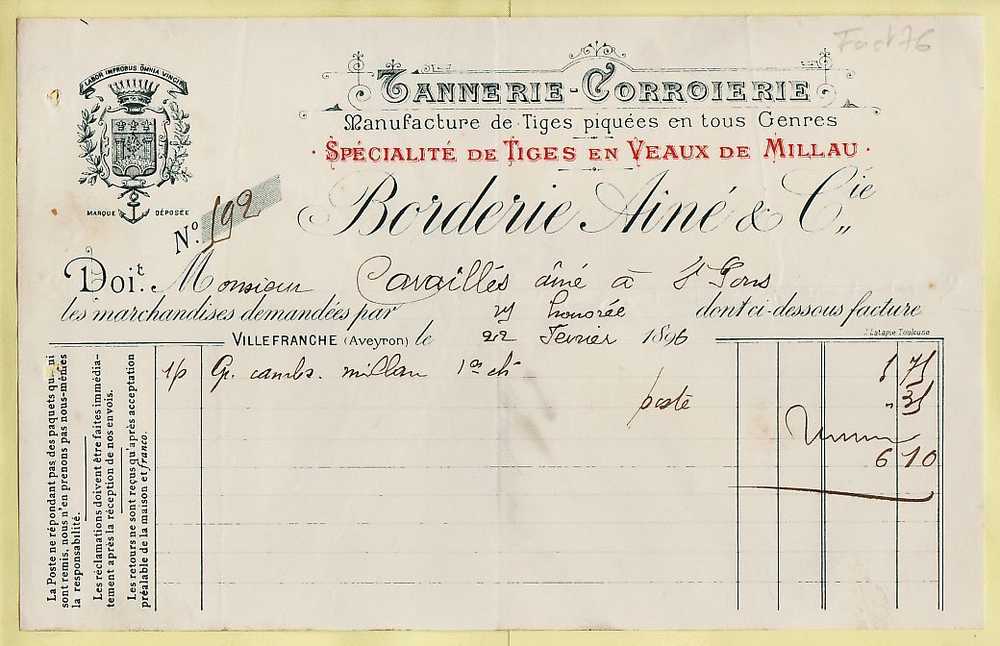 Fact 76
LABOR IMPROBUS OMNIA VINCIT
TANNERIE-CORROIERIE
Manufacture de Tiges piquées en tous Genres
· SPÉCIALITÉ DE TIGES EN VEAUX DE MILLAU ·
MARQUE DÉPOSÉE
Borderie Ainé & Cie
No. 192
Doit. Monsieur Cavaillés ainé à St Pons
les marchandises demandées par honorée dont ci-dessous facture
J. Latapie Toulouse
VILLEFRANCHE (Aveyron) le 22 Fevrier 1896
1p Gr. cambr. millau 1er ch 5 75
poste " 35
6 10
La Poste ne répondant pas des paquets qui lui
sont remis, nous n'en prenons pas nous-mêmes
la responsabilité.
Les réclamations doivent être faites immédia-
tement après la réception de nos envois.
Les retours ne sont reçus qu'après acceptation
préalable de la maison et franco.